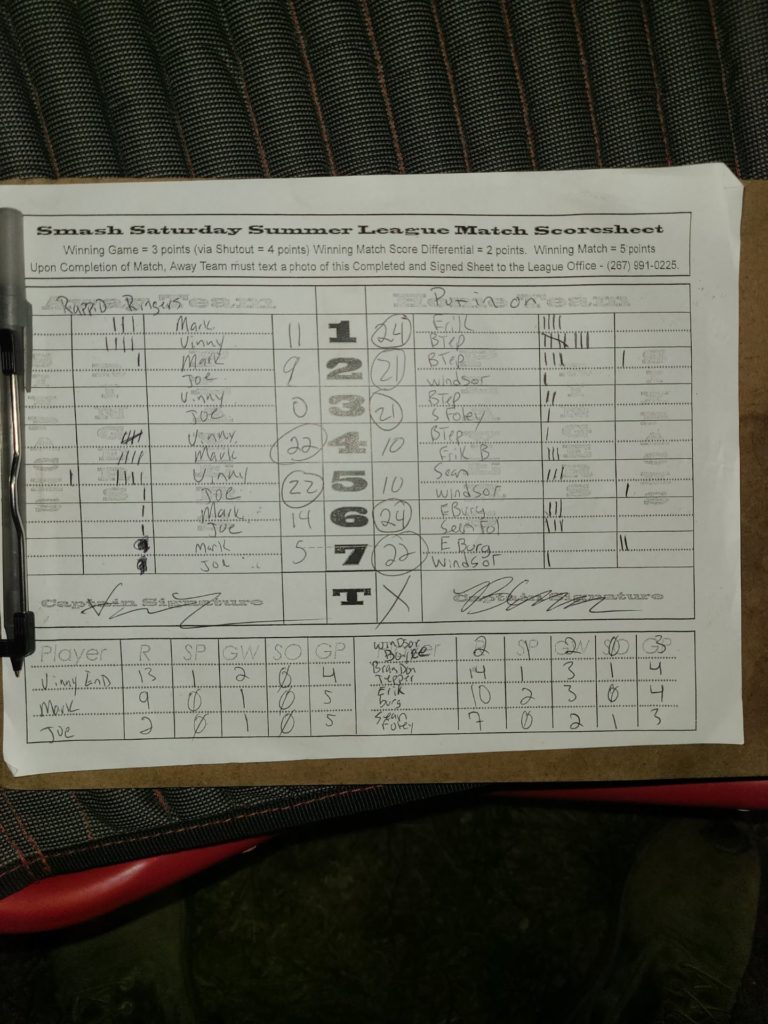 Smash Saturday Summer League Match Scoresheet
Winning Game = 3 points (via Shutout = 4 points) Winning Match Score Differential = 2 points. Winning Match = 5 points
Upon Completion of Match, Away Team must text a photo of this Completed and Signed Sheet to the League Office - (267) 991-0225.
Rappid Ringers Team Put in on Team
||| Mark 11 1 24 Erik ||||
|||| Vinny BTep
| Mark 9 2 21 BTep ||| |
Joe Windsor |
Vinny 0 3 21 BTep ||
Joe S Foley |
Vinny 22 4 10 BTep |
|||| Mark Erik B |||
| |||| Vinny 22 5 10 Sean |||
| Joe Windsor |
| Mark 14 6 24 EBurg |||
| Joe Sean Fol |||
Mark 5 7 22 E Burg ||
Joe Windsor |
Captain Signature T X Captain Signature
Player R SP GW SO GP Windsor 2 1 2 0 3
Vinny End 13 1 2 0 4 Brandon Tepper 14 1 3 1 4
Mark 9 0 1 0 5 Erik burg 10 2 3 0 4
Joe 2 0 1 0 5 Sean Foley 7 0 2 1 3